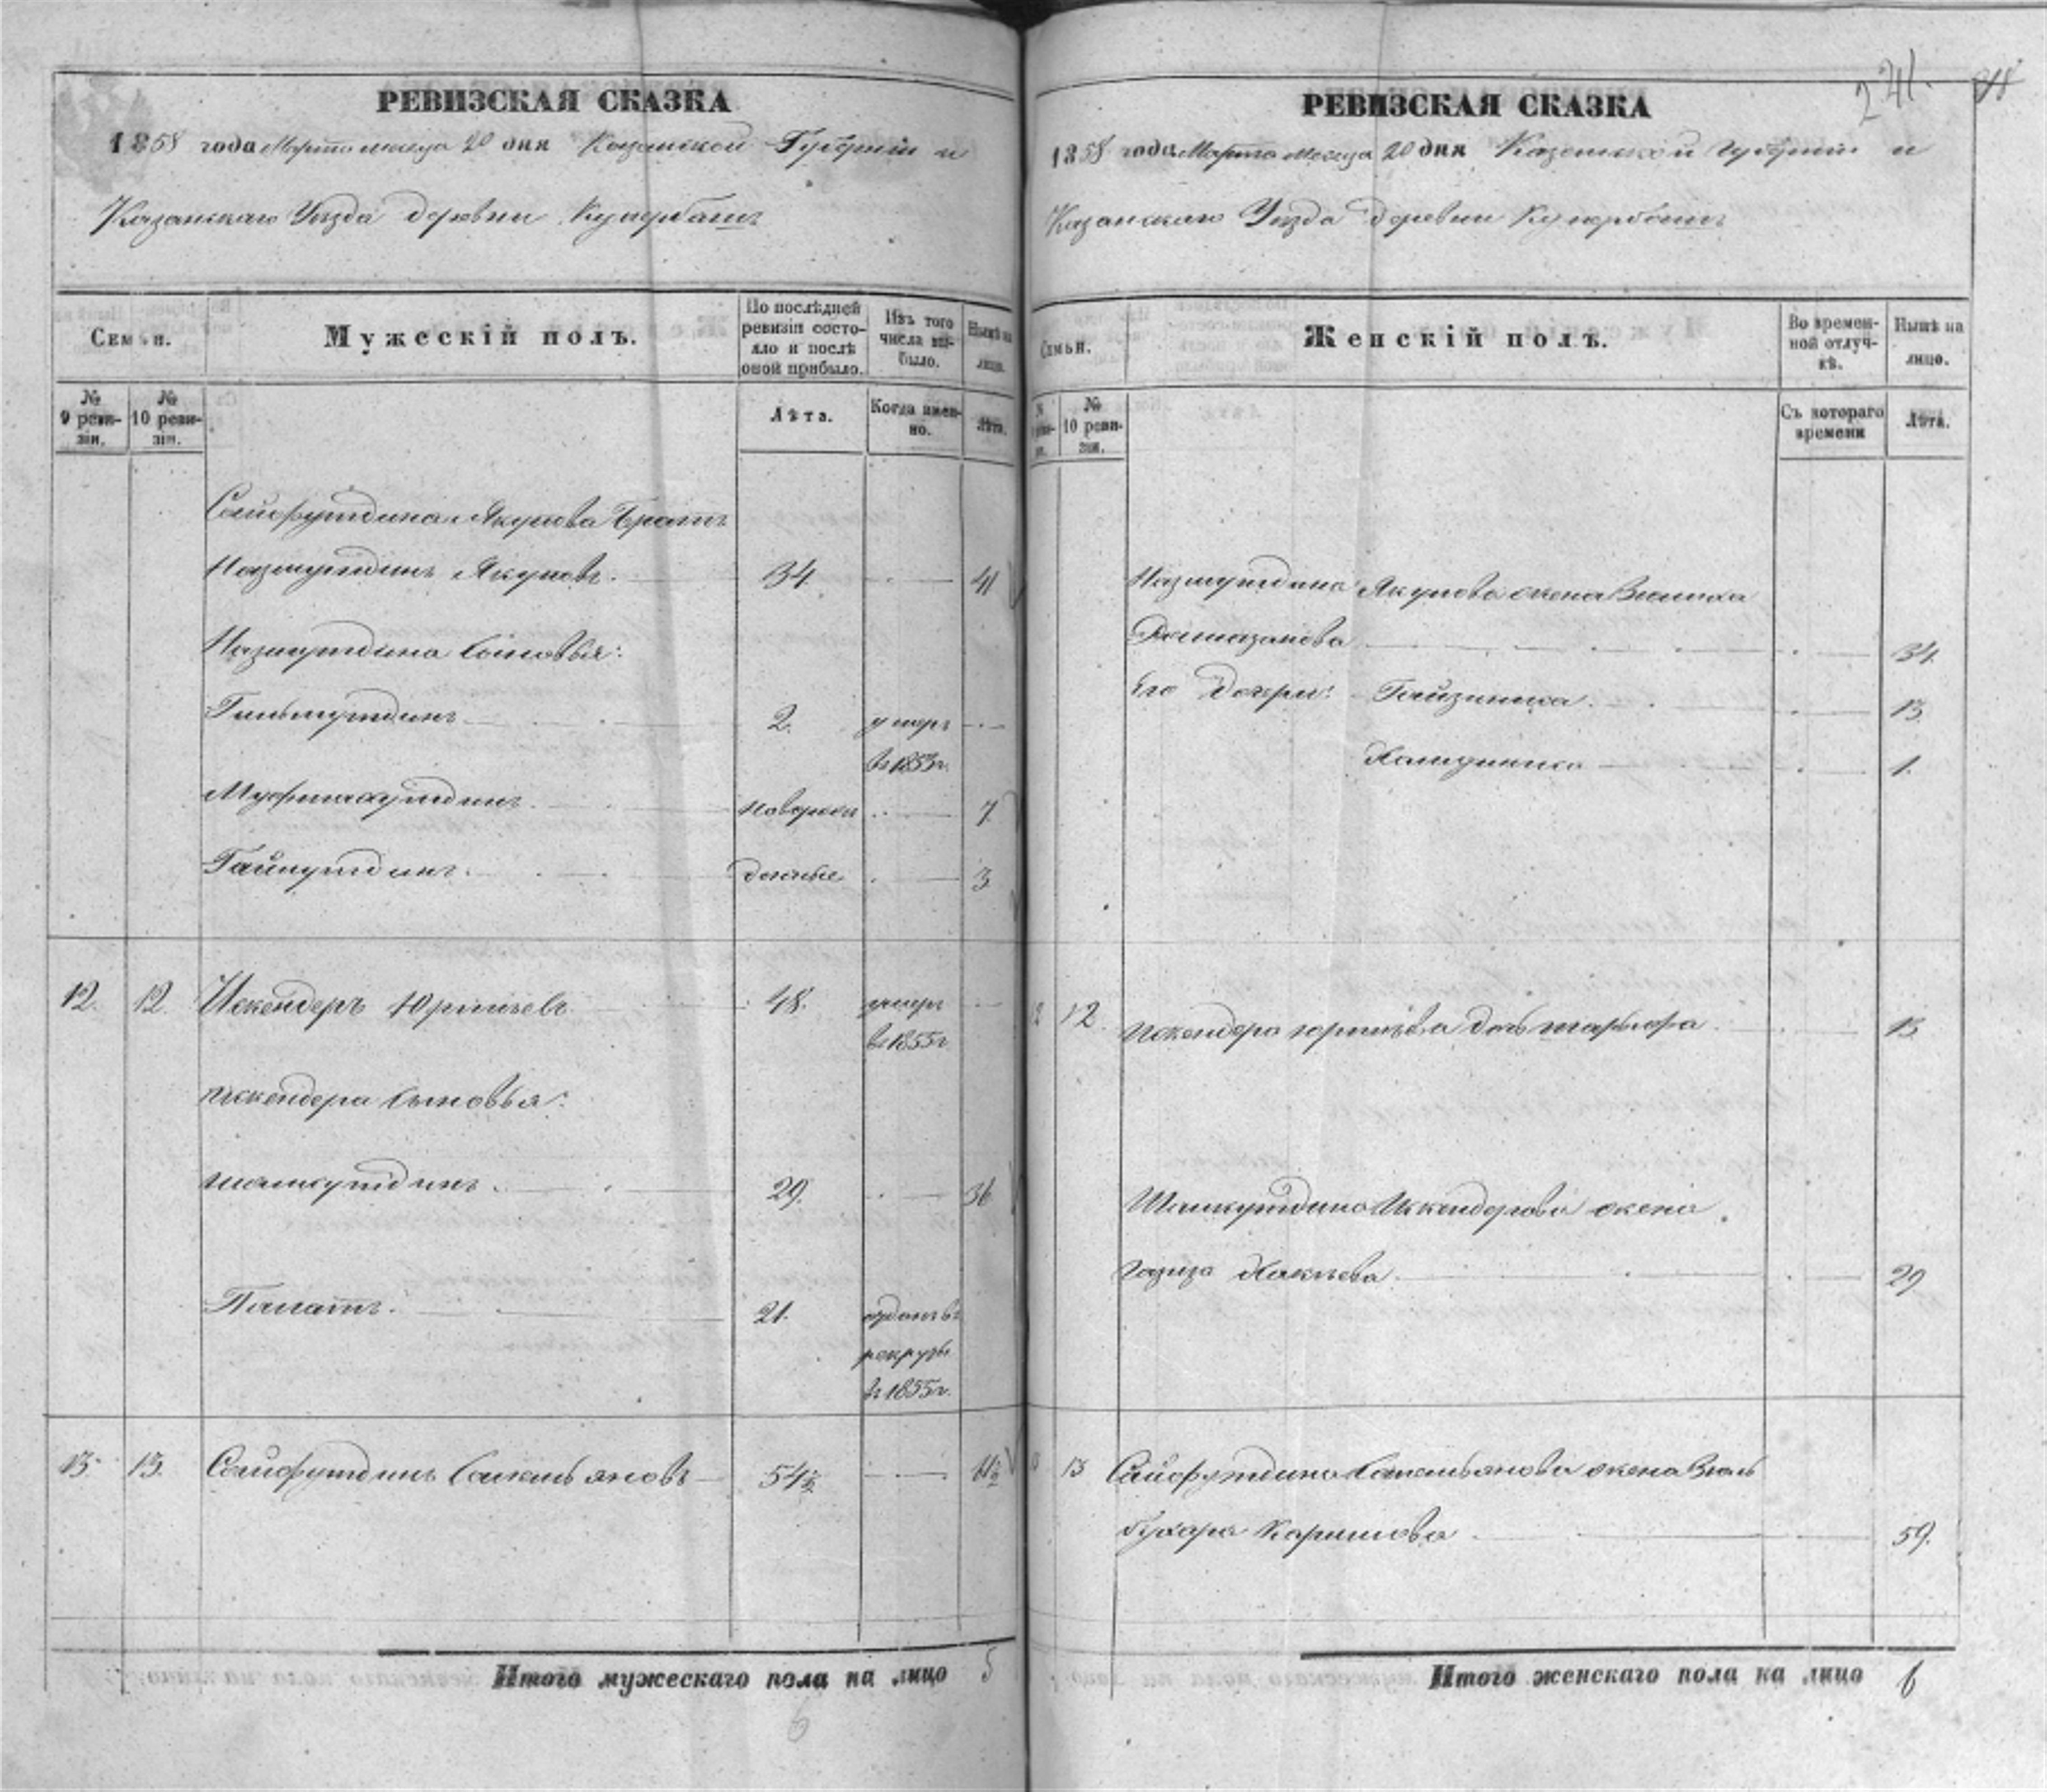 РЕВИЗСКАЯ СКАЗКА
1858 года Марта месяца 20 дня Казанской Губернiи и
Казанскаго Уѣзда деревни Купербашъ
Семьи.
Мужескiй полъ.
По послѣдней ревизiи состояло и послѣ оной прибыло.
Изъ того числа выбыло.
Нынѣ на лицо.
№ 9 ревизiи.
№ 10 ревизiи.
Лѣта.
Когда именно.
Лѣта.
Сайфутдина Якупова Братъ
Назмутдинъ Якуповъ. 34 41
Назмутдина Сыновья:
Гильмутдинъ 2. умеръ
въ 1853г.
Мифтахутдинъ новорож 7.
Гайнутдинъ. денные 3
12. 12. Искендеръ Юртыевъ 48. умеръ
въ 1855г
Искендера Сыновья:
Шамкутдинъ. 29. 36
Панатъ. 21. отданъ въ
рекруты
въ 1855г.
13. 13. Сайфутдинъ 54½ 61½
Итого мужескаго пола на лицо 5
6
241.
РЕВИЗСКАЯ СКАЗКА
1858 года Марта Месяца 20 дня Казанской Губернiи и
Казанскаго Уѣзда деревни Купербашъ
Семьи.
Женскiй полъ.
Во временной отлучкѣ.
Нынѣ на лицо.
№ 10 ревизiи.
Съ котораго времени
Лѣта.
Назмутдина Якупова жена
Рамазанова 34.
Его дочери: Гайзиниса. 13.
Хамдиниса 1.
12. Искендера Юртыева дочь 13
Шамкутдина Искендерова жена
Газиза Хакиева. 29
13 Сайфутдина жена Зюль
бухара Каримова 59.
Итого женскаго пола на лицо 6